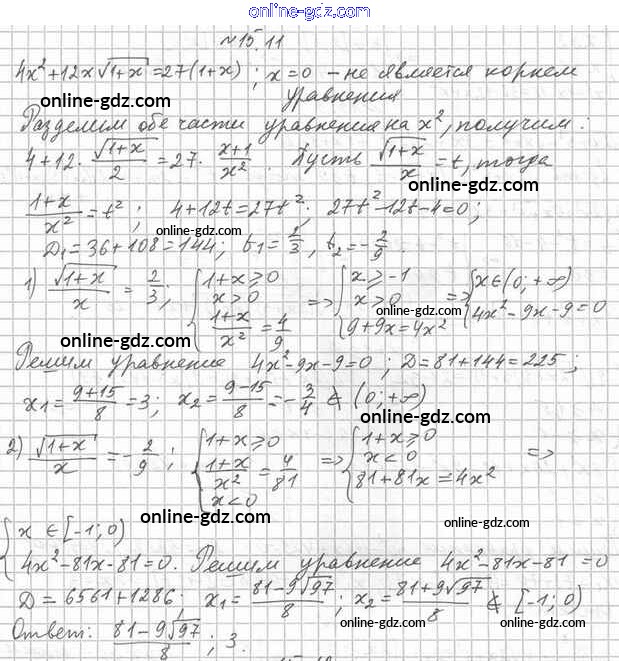 online-gdz.com
№15.11
4x²+12x√(1+x)=27(1+x); x=0 – не является корнем
уравнения
online-gdz.com
Разделим обе части уравнения на x², получим:
4+12·√(1+x)/2=27·(x+1)/x². Пусть √(1+x)/x=t, тогда
online-gdz.com
(1+x)/x²=t²; 4+12t=27t²; 27t²-12t-4=0;
online-gdz.com
D₁=36+108=144; t₁=2/3, t₂=-2/9.
1) √(1+x)/x=2/3; {1+x≥0 x>0 (1+x)/x²=4/9 => {x≥-1 x>0 9+9x=4x² => {x∈(0;+∞) 4x²-9x-9=0
online-gdz.com
online-gdz.com
Решим уравнение 4x²-9x-9=0; D=81+144=225;
x₁=(9+15)/8=3; x₂=(9-15)/8=-3/4 ∉ (0;+∞)
online-gdz.com
2) √(1+x)/x=-2/9; {1+x≥0 (1+x)/x²=4/81 x<0 => {1+x≥0 x<0 81+81x=4x² =>
online-gdz.com
{x∈[-1;0)
online-gdz.com
online-gdz.com
4x²-81x-81=0. Решим уравнение 4x²-81x-81=0
D=6561+1286; x₁=(81-9√97)/8; x₂=(81+9√97)/8 ∉ [-1;0)
online-gdz.com
Ответ: (81-9√97)/8; 3.
online-gdz.com